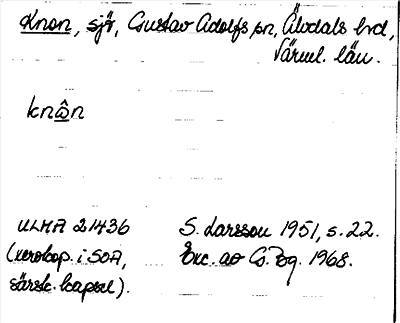 Knon, sjö, Gustav Adolfs sn, Älvdals hd,
Värml. län.
knω̂n
ULMA 21436
(xerokop. i SOA,
särsk. kapsel).
S. Larsson 1951, s. 22.
Exc. av G. Bg. 1968.